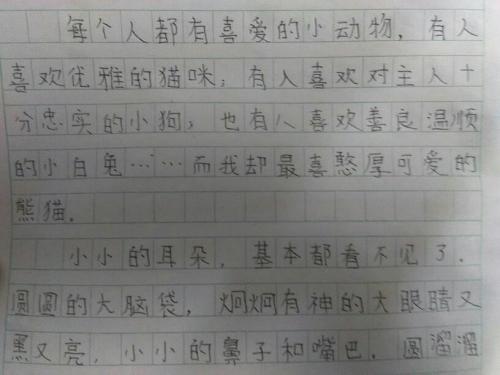 每个人都有喜爱的小动物，有人
喜欢优雅的猫咪；有人喜欢对主人十
分忠实的小狗；也有人喜欢善良温顺
的小白兔……而我却最喜憨厚可爱的
熊猫。
小小的耳朵，基本都看不见了．
圆圆的大脑袋，炯炯有神的大眼睛又
黑又亮，小小的鼻子和嘴巴．圆溜溜